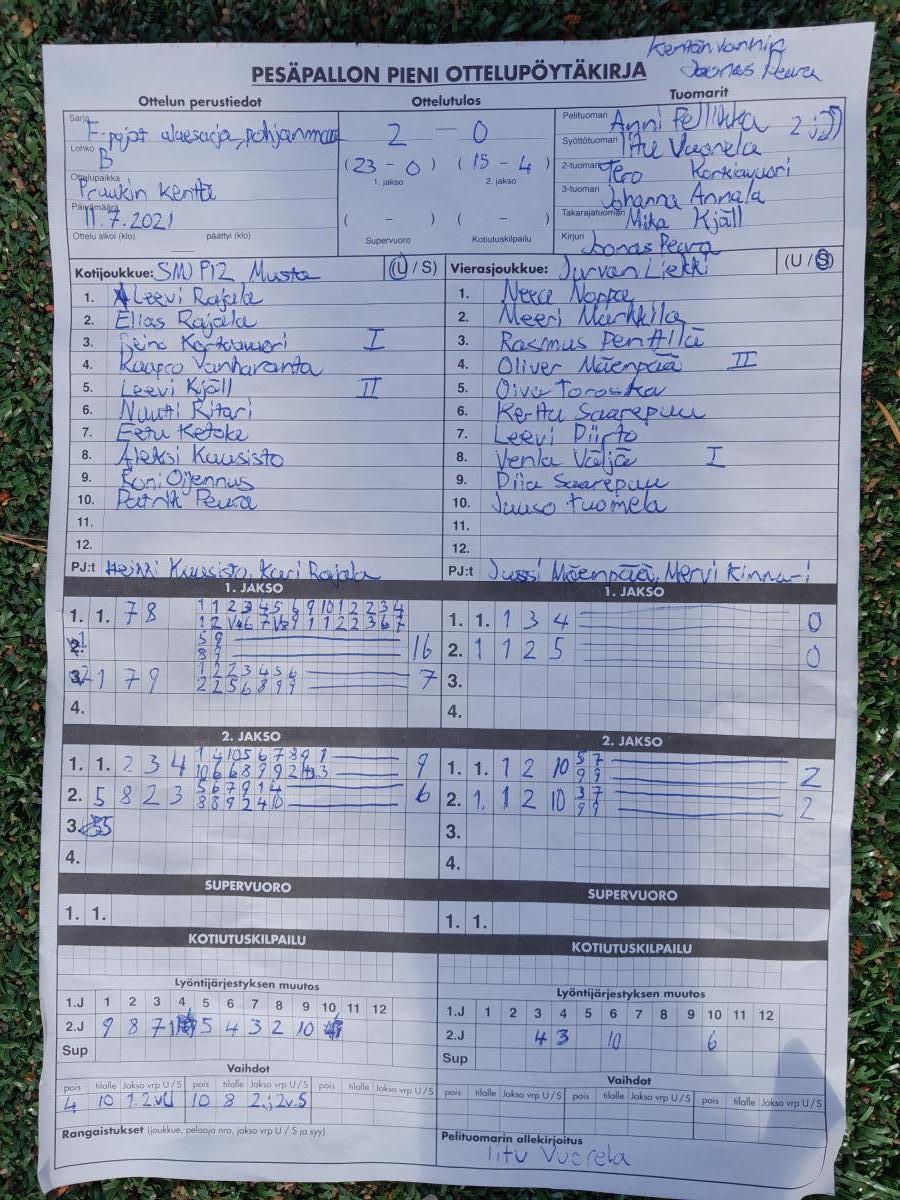 Kentän vanhin
Joonas Peura
PESÄPALLON PIENI OTTELUPÖYTÄKIRJA
Ottelun perustiedot
Ottelutulos
Tuomarit
Sarja F-pojat aluesarja, pohjanmaa
Lohko B
Ottelupaikka
Pruukin kenttä
Päivämäärä
11.7.2021
Ottelu alkoi (klo) päättyi (klo)
2 — 0
(23 - 0) (15 - 4)
1. jakso 2. jakso
( - ) ( - )
Supervuoro Kotiutuskilpailu
Pelituomari Anni Pellikka 2 jJ
Syöttötuomari Iitu Vuorela
2-tuomari Tero Korkiavuori
3-tuomari Johanna Annala
Takarajatuomari Mika Kjäll
Kirjuri Joonas Peura
Kotijoukkue: SMJ P12 Musta (U / S)
1. Leevi Rajala
2. Elias Rajala
3. Korkiavuori I
4. Kaapro Vanharanta
5. Leevi Kjäll II
6. Nuutti Ritari
7. Eetu Ketoke
8. Aleksi Kuusisto
9. Roni Oijennus
10. Patrik Peura
11.
12.
PJ:t Heikki Kuusisto, Kari Rajala
Vierasjoukkue: Jurvan Liekki (U / S)
1. Neea Noppa
2. Meeri Markkila
3. Rasmus Penttilä
4. Oliver Mäenpää II
5. Oiva Toroska
6. Kerttu Saarepuu
7. Leevi Piirto
8. Venla Väljä I
9. Diia Saarepuu
10. Juuso Tuomela
11.
12.
PJ:t Jussi Mäenpää, Mervi Kinnari
1. JAKSO
1. 1. 7 8
1 1 2 3 4 5 6 9 10 1 2 2 3 4
5 9
8 9
16
1 7 9
1 2 2 3 4 5 6
2 2 5 6 8 9 9
7
4.
1. JAKSO
1. 1. 1 3 4 0
2. 1 1 2 5 0
3.
4.
2. JAKSO
1. 1. 2 3 4
1 4 10 5 6 7 8 9 1
9
2. 5 8 2 3
5 6 7 9 1 4
8 8 9 2 4 10
6
3.
4.
2. JAKSO
1. 1. 1 2 10
5 7
9 9
2
2. 1. 1 2 10
3 7
9 9
2
3.
4.
SUPERVUORO
1. 1.
SUPERVUORO
1. 1.
KOTIUTUSKILPAILU
KOTIUTUSKILPAILU
Lyöntijärjestyksen muutos
1.J 1 2 3 4 5 6 7 8 9 10 11 12
2.J 9 8 7 1 5 4 3 2 10
Sup
Lyöntijärjestyksen muutos
1.J 1 2 3 4 5 6 7 8 9 10 11 12
2.J 4 3 10 6
Sup
Vaihdot
pois tilalle Jakso vrp U/S pois tilalle Jakso vrp U/S pois tilalle Jakso vrp U/S
4 10 1.2vU 10 8 2.j2v.S
Vaihdot
pois tilalle Jakso vrp U/S pois tilalle Jakso vrp U/S pois tilalle Jakso vrp U/S
Rangaistukset (joukkue, pelaaja nro, jakso vrp U / S ja syy)
Pelituomarin allekirjoitus
Iitu Vuorela